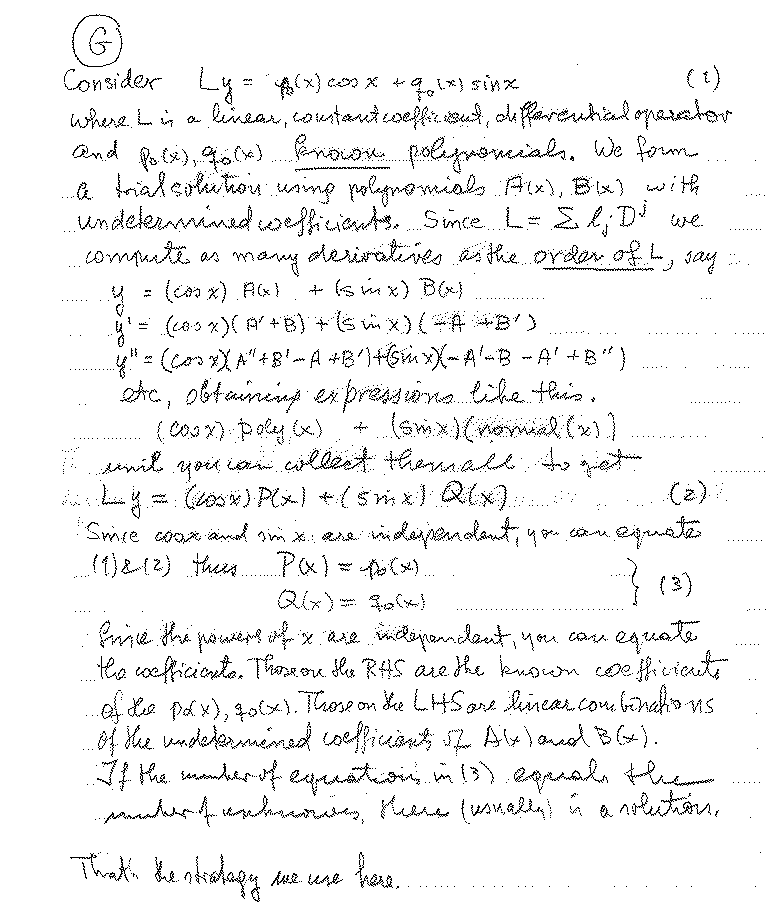 G
Consider Ly = p₀(x) cos x + q₀(x) sin x (1)
where L is a linear, constant coefficient, differential operator
and p₀(x), q₀(x) known polynomials. We form
a trial solution using polynomials A(x), B(x) with
undetermined coefficients. Since L = Σ lⱼ Dʲ we
compute as many derivatives as the order of L, say
y = (cos x) A(x) + (sin x) B(x)
y' = (cos x)(A' + B) + (sin x)(-A + B')
y" = (cos x)(A" + B' - A + B') + (sin x)(-A' - B - A' + B")
etc, obtaining expressions like this.
(cos x) poly(x) + (sin x)(nomial(x))
until you can collect them all to get
Ly = (cos x) P(x) + (sin x) Q(x) (2)
Since cos x and sin x are independent, you can equate
(1) & (2) thus P(x) = p₀(x)
Q(x) = q₀(x) } (3)
Since the powers of x are independent, you can equate
the coefficients. Those on the RHS are the known coefficients
of the p₀(x), q₀(x). Those on the LHS are linear combinations
of the undetermined coefficients of A(x) and B(x).
If the number of equations in (3) equals the
number of unknowns, there (usually) is a solution.
That's the strategy we use here.